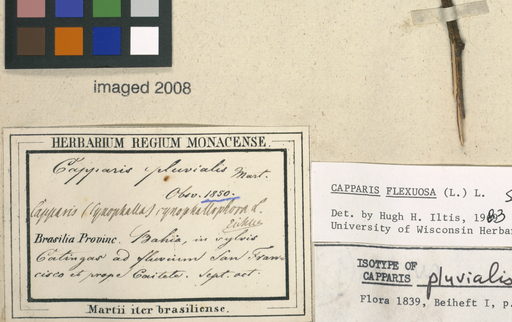 imaged 2008
HERBARIUM REGIUM MONACENSE.
Capparis pluvialis Mart.
Obsv. 1850.
Capparis (Cynophalla) cynophallophora L.
Eichler
Brasilia Provinc. Bahia, in sylvis
Catingas ad fluvium San Fran-
cisco et prope Caitete. Sept. oct.
Martii iter brasiliense.
CAPPARIS FLEXUOSA (L.) L.
Det. by Hugh H. Iltis, 1983
University of Wisconsin Herba
ISOTYPE OF
CAPPARIS pluvialis
Flora 1839, Beiheft I, p.